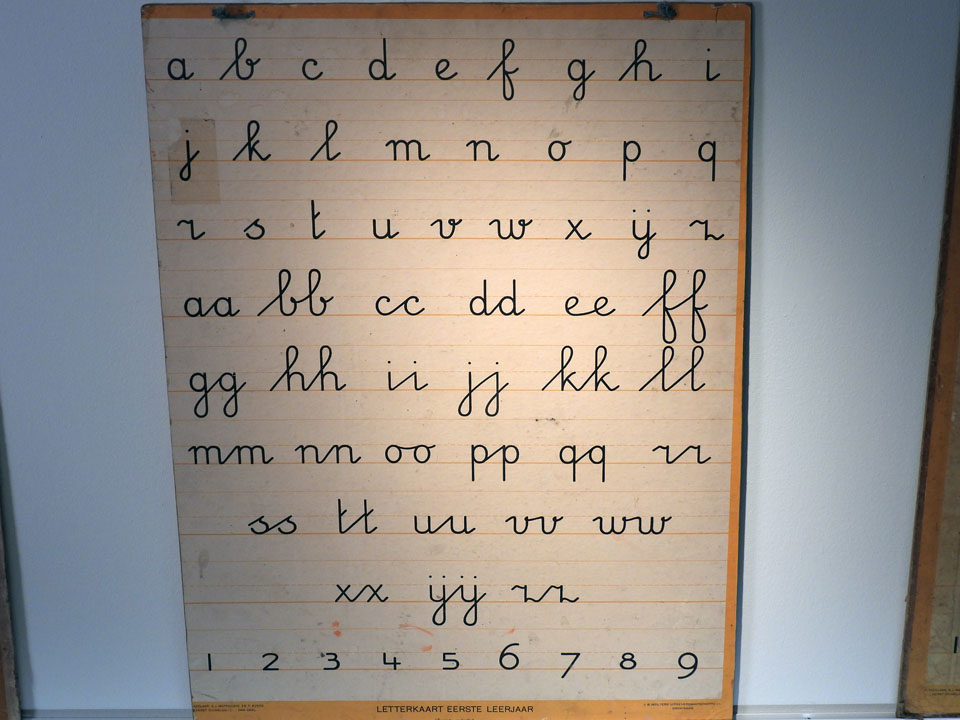 a b c d e f g h i
j k l m n o p q
r s t u v w x ij z
aa bb cc dd ee ff
gg hh ii jj kk ll
mm nn oo pp qq rr
ss tt uu vv ww
xx ijij zz
1 2 3 4 5 6 7 8 9
LETTERKAART EERSTE LEERJAAR